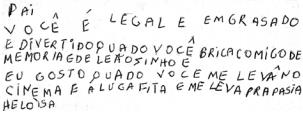 PAI
VOCÊ É LEGAL E EMGRASADO
E DIVERTIDO QUADO VOCÊ BRICA COMIGO DE
MEMORIA G DE LEÃOSINHO E
EU GOSTO QUADO VOCE ME LEVA NO
CINEMA E ALUGA FITA E ME LEVA PRA PASIA
HELOISA